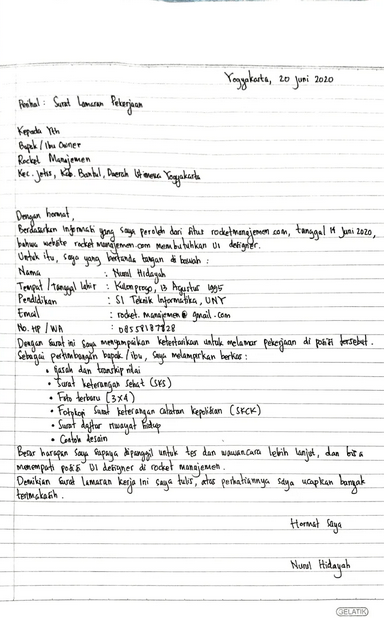 Yogyakarta, 20 Juni 2020
Perihal : Surat Lamaran Pekerjaan
Kepada Yth
Bapak / Ibu Owner
Rocket Manajemen
Kec. Jetis, Kab. Bantul, Daerah Istimewa Yogyakarta
Dengan hormat,
Berdasarkan informasi yang saya peroleh dari situs rocketmanajemen.com, tanggal 14 Juni 2020,
bahwa website rocketmanajemen.com membutuhkan UI designer.
Untuk itu, saya yang bertanda tangan di bawah :
Nama : Nurul Hidayah
Tempat / Tanggal lahir : Kulonprogo, 13 Agustus 1995
Pendidikan : S1 Teknik Informatika, UNY
Email : rocket.manajemen@gmail.com
No. HP / WA : 08558187828
Dengan surat ini saya menyampaikan ketertarikan untuk melamar pekerjaan di posisi tersebut.
Sebagai pertimbangan bapak / ibu, saya melampirkan berkas :
• Ijasah dan transkip nilai
• Surat keterangan sehat (SKS)
• Foto terbaru (3x4)
• Fotokopi surat keterangan catatan kepolisian (SKCK)
• Surat daftar riwayat hidup
• Contoh desain
Besar harapan saya supaya dipanggil untuk tes dan wawancara lebih lanjut, dan bisa
menempati posisi UI designer di rocket manajemen.
Demikian surat lamaran kerja ini saya tulis, atas perhatiannya saya ucapkan banyak
terimakasih.
Hormat Saya
Nurul Hidayah
GELATIK